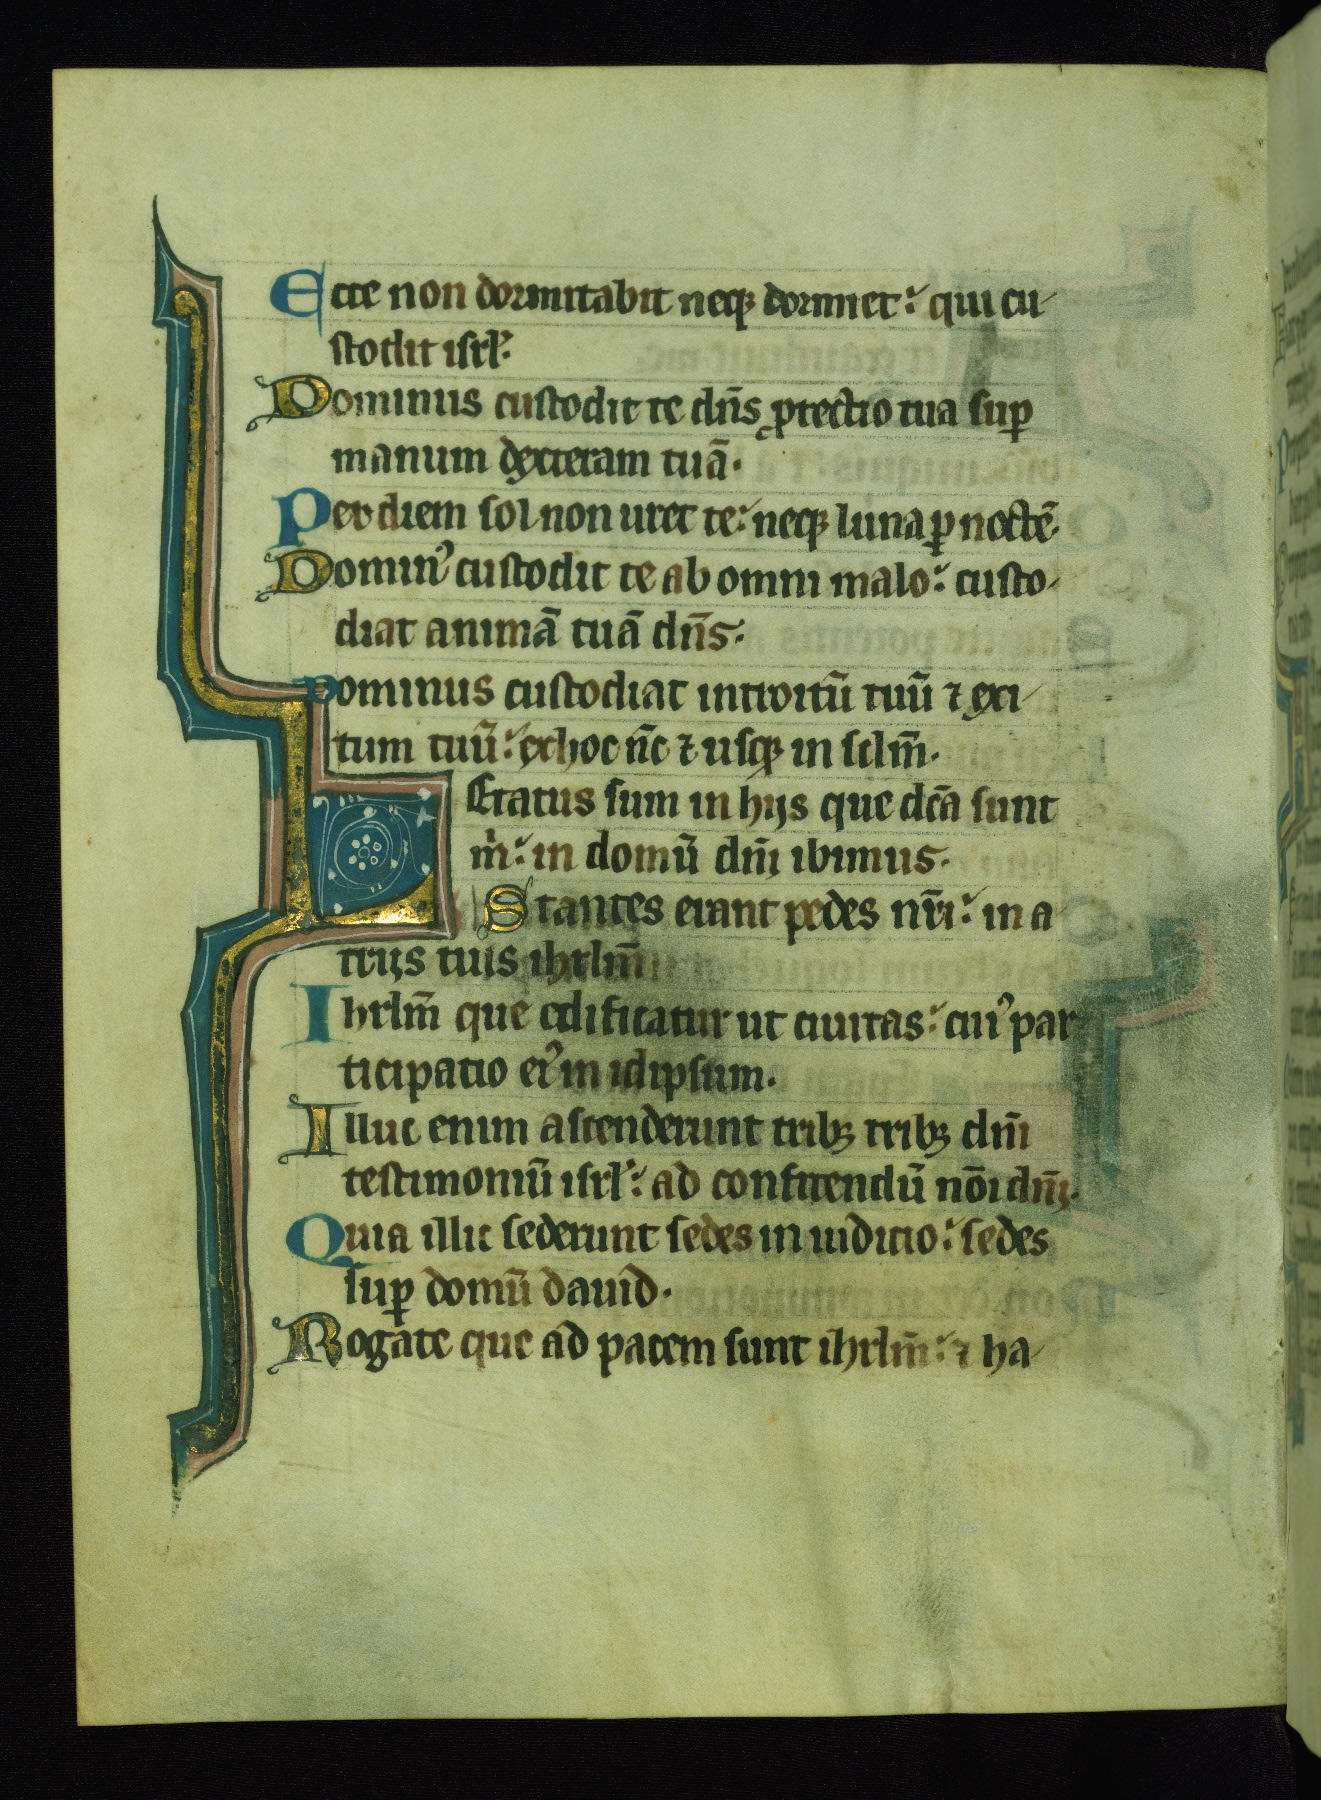 Ecce non dormitabit neqꝫ dormiet: qui cu
stodit isrl'.
Dominus custodit te dn̄s ꝓtectio tua suꝑ
manum dexteram tuā.
Per diem sol non uret te: neqꝫ luna ꝑ noctē.
Domin᾽ custodit te ab omni malo: custo
diat animā tuā dn̄s.
Dominus custodiat introitū tuū ⁊ exi
tum tuū: ex hoc nc̄ ⁊ usqꝫ in sclm̄.
Letatus sum in hijs que dcā sunt
m̄: in domū dnī ibimus.
Stantes erant pedes nr̄i: in a
trijs tuis ihrlm̄
Ihrlm̄ que edificatur ut ciuitas: cui᾽ par
ticipatio ei᾽ in idipsum.
Illuc enim ascenderunt tribꝫ tribꝫ dn̄i
testimoniū isrl': ad confitendū nōi dn̄i.
Quia illic sederunt sedes in iudicio: sedes
suꝑ domū dauid.
Rogate que ad pacem sunt ihrlm̄: ⁊ ha